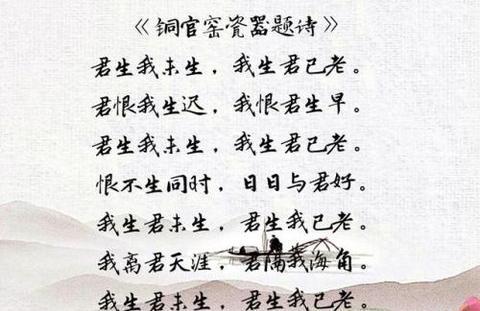 《铜官窑瓷器题诗》
君生我未生，我生君已老。
君恨我生迟，我恨君生早。
君生我未生，我生君已老。
恨不生同时，日日与君好。
我生君未生，君生我已老。
我离君天涯，君隔我海角。
我生君未生，君生我已老。